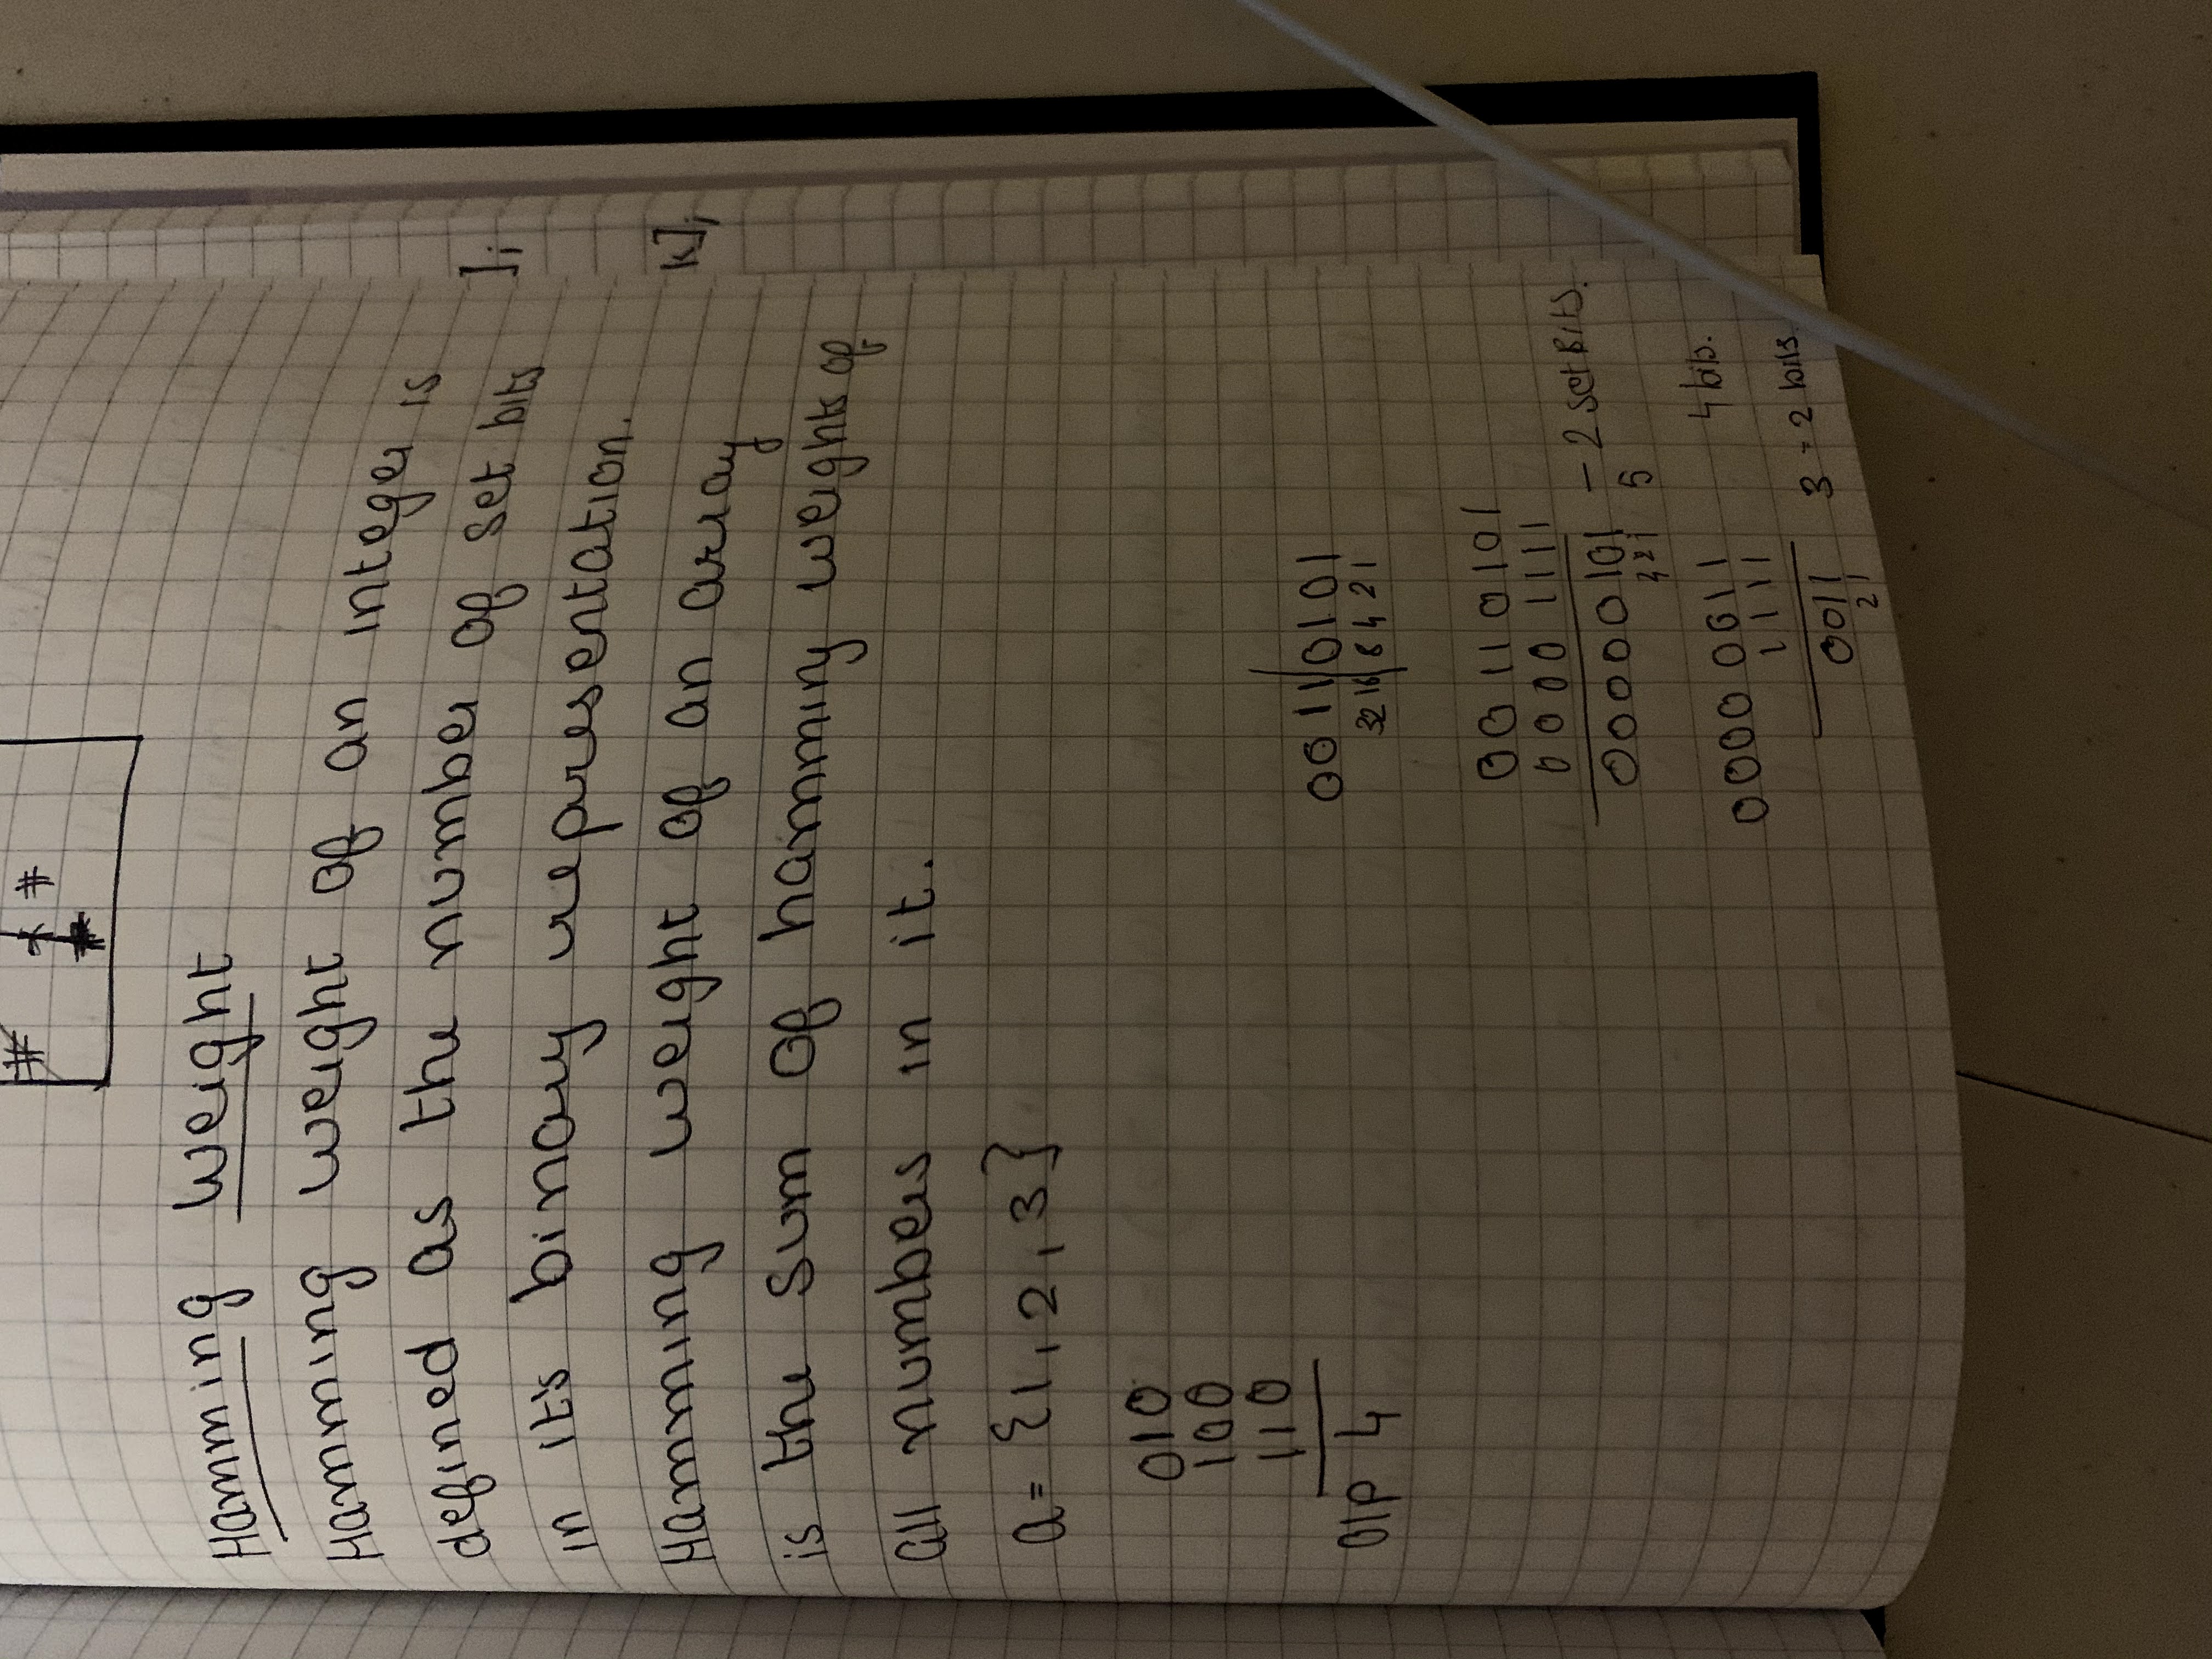 # #
Hamming Weight
Hamming weight of an integer is
defined as the number of set bits
in it's binary representation.
Hamming weight of an array
is the sum of hamming weights of
all numbers in it.
a = {1, 2, 3}
010
100
110
O/P 4
0011|0101
32 16 8 4 2 1
00110101
00001111
00000101 - 2 set Bits.
4 2 1 5
0000 0011 4 bits.
1111
0011 3 - 2 bits.
2 1
];
k];